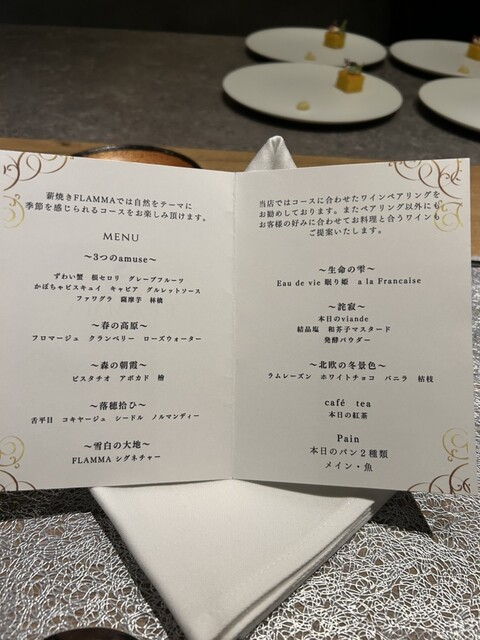 薪焼きFLAMMAでは自然をテーマに
季節を感じられるコースをお楽しみ頂けます。
MENU
～3つのamuse～
ずわい蟹 根セロリ グレープフルーツ
かぼちゃビスキュイ キャビア グルレットソース
ファワグラ 薩摩芋 林檎
～春の高原～
フロマージュ クランベリー ローズウォーター
～森の朝霞～
ピスタチオ アボカド 檜
～落穂拾ひ～
舌平目 コキヤージュ シードル ノルマンディー
～雪白の大地～
FLAMMA シグネチャー
当店ではコースに合わせたワインペアリングを
お勧めしております。またペアリング以外にも
お客様の好みに合わせてお料理と合うワインも
ご提案いたします。
～生命の雫～
Eau de vie 眠り姫 a la Francaise
～詫寂～
本日のviande
結晶塩 和芥子マスタード
発酵パウダー
～北欧の冬景色～
ラムレーズン ホワイトチョコ バニラ 枯枝
café tea
本日の紅茶
Pain
本日のパン２種類
メイン・魚